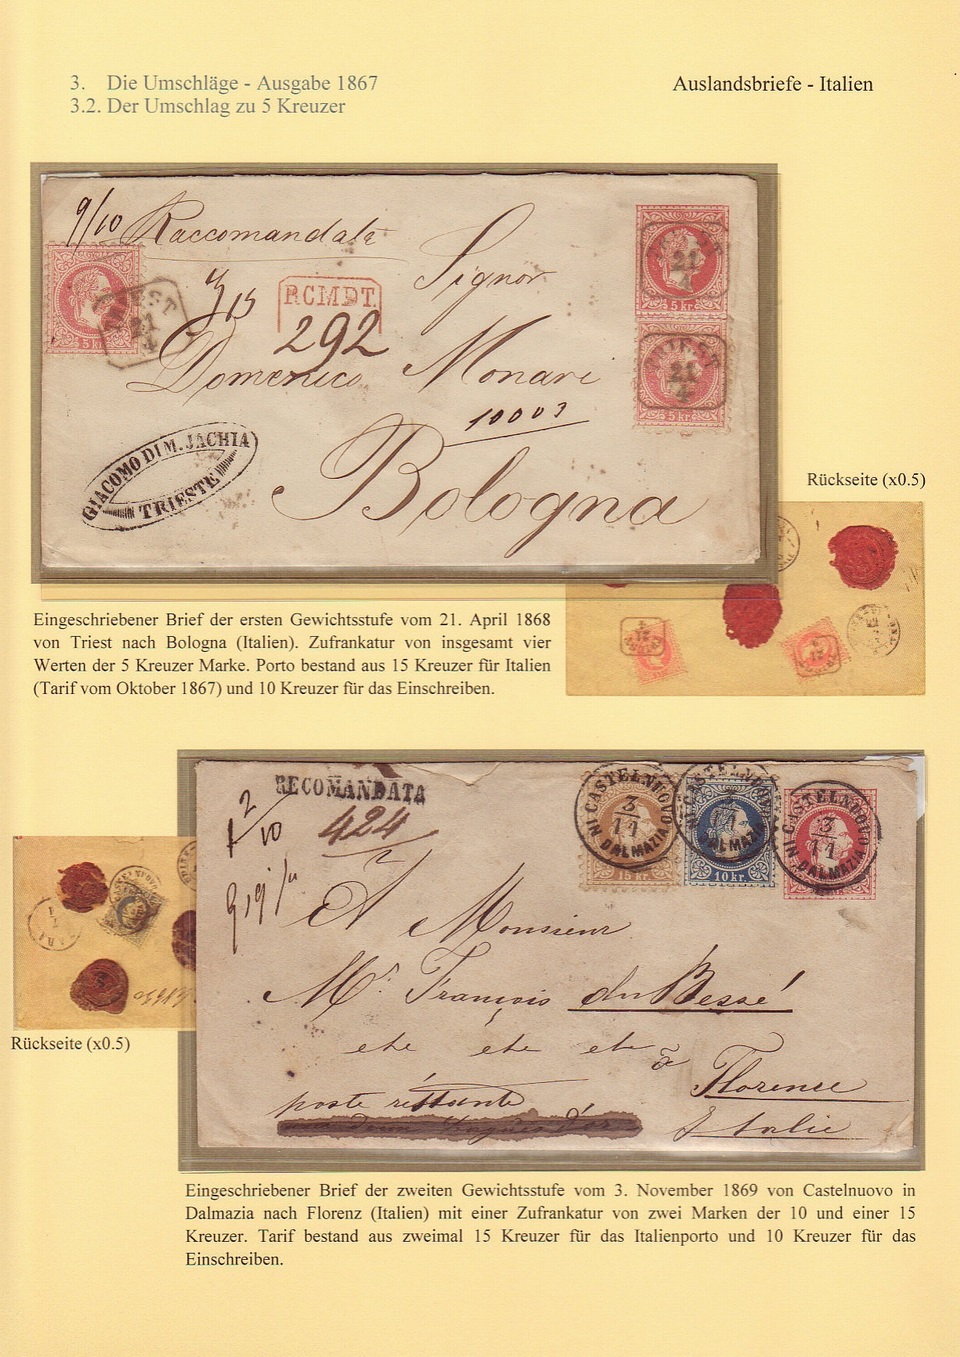 3. Die Umschläge - Ausgabe 1867
Auslandsbriefe - Italien
3.2. Der Umschlag zu 5 Kreuzer
9/10 Raccomandata
Signor
RCMDT.
292
Domenico Monari
10003
Bologna
GIACOMO DI M. JACHIA
TRIESTE
TRIEST
21
4
5 kr.
TRIEST
21
4
5 kr.
TRIEST
21
4
5 kr.
Rückseite (x0.5)
Eingeschriebener Brief der ersten Gewichtsstufe vom 21. April 1868
von Triest nach Bologna (Italien). Zufrankatur von insgesamt vier
Werten der 5 Kreuzer Marke. Porto bestand aus 15 Kreuzer für Italien
(Tarif vom Oktober 1867) und 10 Kreuzer für das Einschreiben.
RECOMANDATA
424
CASTELNUOVO
3
11
IN DALMAZIA
15 kr.
CASTELNUOVO
3
11
IN DALMAZIA
10 kr.
CASTELNUOVO
3
11
IN DALMAZIA
A Monsieur
Mr. François du Bessé
etc etc etc
à Florence
poste restante
Italie
Rückseite (x0.5)
Eingeschriebener Brief der zweiten Gewichtsstufe vom 3. November 1869 von Castelnuovo in
Dalmazia nach Florenz (Italien) mit einer Zufrankatur von zwei Marken der 10 und einer 15
Kreuzer. Tarif bestand aus zweimal 15 Kreuzer für das Italienporto und 10 Kreuzer für das
Einschreiben.